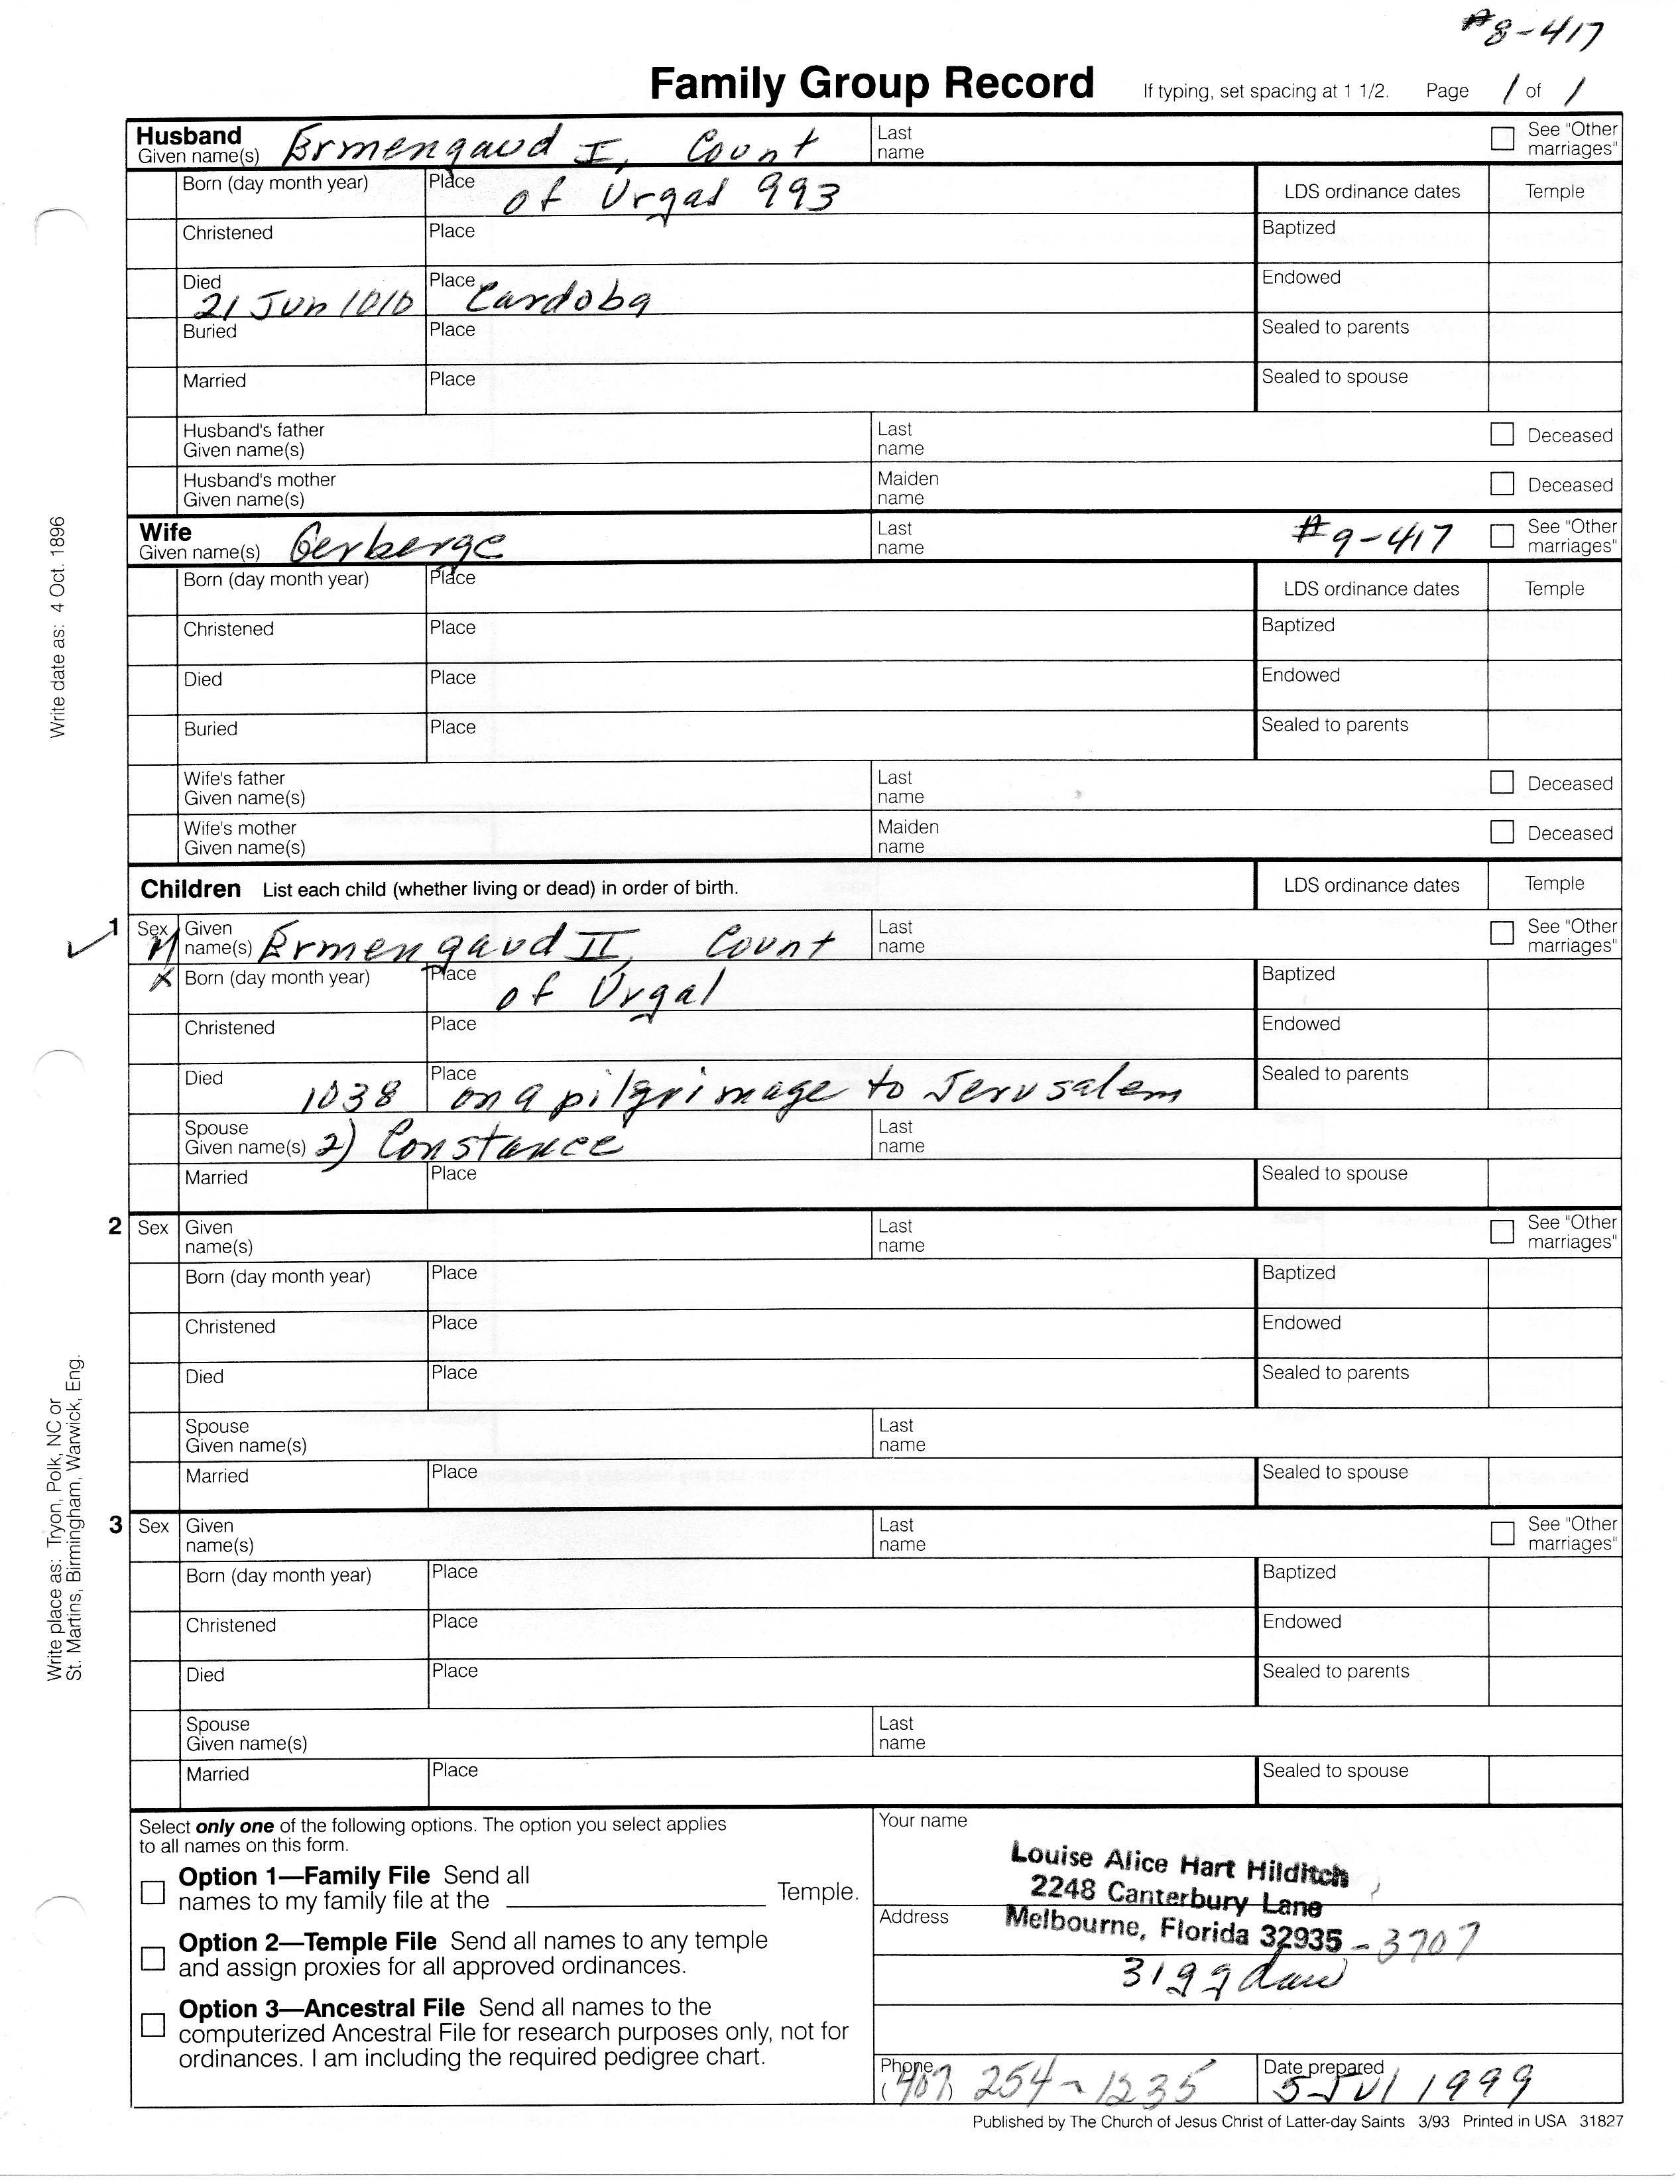 #8-417
Family Group Record If typing, set spacing at 1 1/2. Page 1 of 1
Husband
Given name(s) Ermengaud I, Count Last name See "Other marriages"
Born (day month year) Place of Urgal 993 LDS ordinance dates Temple
Christened Place Baptized
Died 21 Jun 1010 Place Cardoba Endowed
Buried Place Sealed to parents
Married Place Sealed to spouse
Husband's father Given name(s) Last name Deceased
Husband's mother Given name(s) Maiden name Deceased
Wife
Given name(s) Gerberge Last name #9-417 See "Other marriages"
Born (day month year) Place LDS ordinance dates Temple
Christened Place Baptized
Died Place Endowed
Buried Place Sealed to parents
Wife's father Given name(s) Last name Deceased
Wife's mother Given name(s) Maiden name Deceased
Children List each child (whether living or dead) in order of birth. LDS ordinance dates Temple
1 Sex M Given name(s) Ermengaud II, Count Last name See "Other marriages"
X Born (day month year) Place of Urgal Baptized
Christened Place Endowed
Died 1038 Place on a pilgrimage to Jerusalem Sealed to parents
Spouse Given name(s) 2) Constance Last name
Married Place Sealed to spouse
2 Sex Given name(s) Last name See "Other marriages"
Born (day month year) Place Baptized
Christened Place Endowed
Died Place Sealed to parents
Spouse Given name(s) Last name
Married Place Sealed to spouse
3 Sex Given name(s) Last name See "Other marriages"
Born (day month year) Place Baptized
Christened Place Endowed
Died Place Sealed to parents
Spouse Given name(s) Last name
Married Place Sealed to spouse
Write date as: 4 Oct. 1896
Write place as: Tryon, Polk, NC or
St. Martins, Birmingham, Warwick, Eng.
Select only one of the following options. The option you select applies
to all names on this form.
Option 1—Family File Send all
names to my family file at the Temple.
Option 2—Temple File Send all names to any temple
and assign proxies for all approved ordinances.
Option 3—Ancestral File Send all names to the
computerized Ancestral File for research purposes only, not for
ordinances. I am including the required pedigree chart.
Your name
Louise Alice Hart Hilditch
2248 Canterbury Lane
Address Melbourne, Florida 32935-3707
Phone (407) 254-1235 Date prepared 5 Jul 1999
Published by The Church of Jesus Christ of Latter-day Saints 3/93 Printed in USA 31827